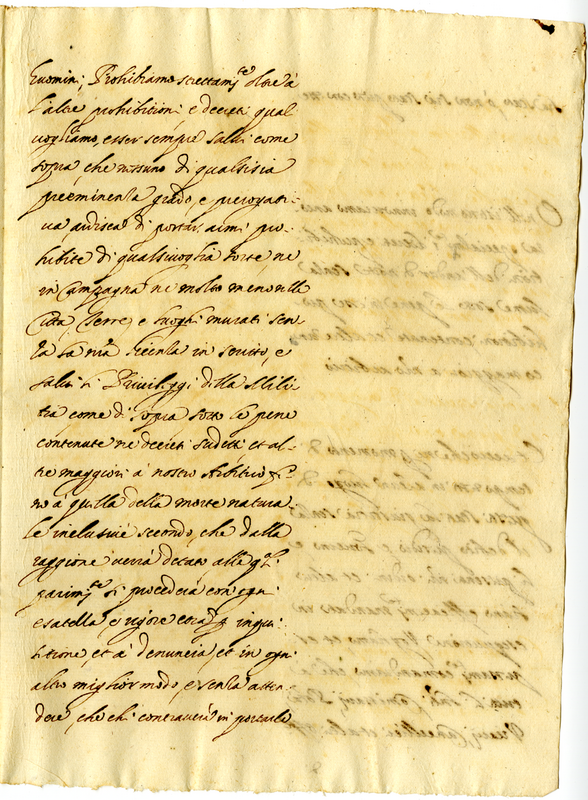 huomini, Prohibiamo strettam.te oltre à
l'altre prohibitioni, e decreti qual
vogliamo, esser sempre salvi come
sopra, che nissuno di qualsisia
preeminenza grado, e prerogati-
va ardisca di portar armi pro-
hibite di qualsivoglia sorte, ne
in Campagna ne molto meno nelle
Città, Terre, e luoghi murati sen-
za la n'ra licenza in scritto, e
salvi li Privileggi della Mili-
tia come di sopra sotto le pene
contenute ne decreti sudetti et al-
tre maggiori à nostro Arbitrio fi-
no à quella della morte natura-
le inclusive secondo, che dalla
raggione verrà dettato alle q.li
parim.te si procederà con ogni
esatezza, e rigore etia p inqui-
sitione, et à denuncia, et in ogni
altro miglior modo, e senza atten-
dere, che chi contraverrà in portarle